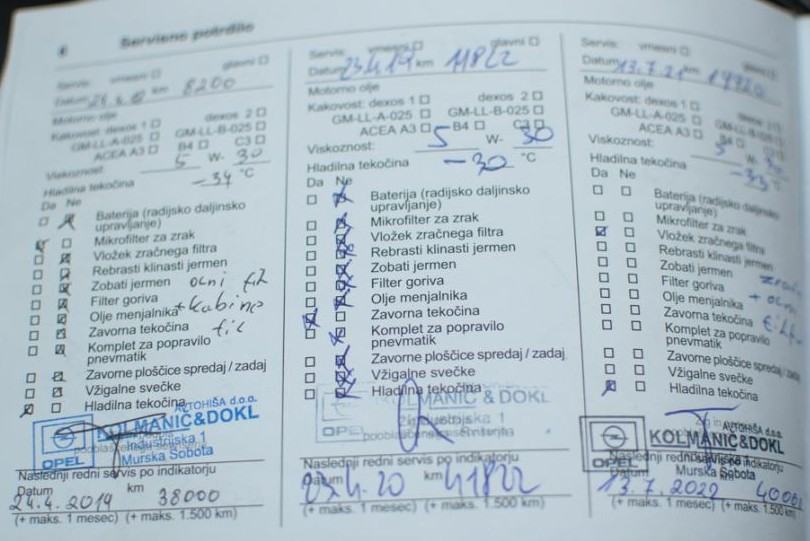 6 Servisno potrdilo
Servis: vmesni glavni
Datum 24.4.18 km 8200
Motorno olje
Kakovost: dexos 1 dexos 2
GM-LL-A-025 GM-LL-B-025
ACEA A3 B4 C3
Viskoznost: 5 W- 30
Hladilna tekočina -34 °C
Da Ne
Baterija (radijsko daljinsko
upravljanje)
Mikrofilter za zrak
Vložek zračnega filtra
Rebrasti klinasti jermen
Zobati jermen
Filter goriva
Olje menjalnika + kabine
Zavorna tekočina
Komplet za popravilo
pnevmatik
Zavorne ploščice spredaj / zadaj
Vžigalne svečke
Hladilna tekočina
AVTOHIŠA d.o.o.
KOLMANIČ&DOKL
Industrijska 1
OPEL Murska Sobota
Naslednji redni servis po indikatorju
Datum km
24.4.2019 38000
(+ maks. 1 mesec) (+ maks. 1.500 km)
Servis: vmesni glavni
Datum 23.4.19 km 11822
Motorno olje
Kakovost: dexos 1 dexos 2
GM-LL-A-025 GM-LL-B-025
ACEA A3 B4 C3
Viskoznost: 5 W- 30
Hladilna tekočina -30 °C
Da Ne
Baterija (radijsko daljinsko
upravljanje)
Mikrofilter za zrak
Vložek zračnega filtra
Rebrasti klinasti jermen
Zobati jermen
Filter goriva
Olje menjalnika
Zavorna tekočina
Komplet za popravilo
pnevmatik
Zavorne ploščice spredaj / zadaj
Vžigalne svečke
Hladilna tekočina
MANIČ & DOKL
Industrijska 1
OPEL
Naslednji redni servis po indikatorju
Datum km
23.4.20 41822
(+ maks. 1 mesec) (+ maks. 1.500 km)
Servis: vmesni glavni
Datum 13.7.21 km
Motorno olje
Kakovost: dexos 1
GM-LL-A-025 GM-LL-B-025
ACEA A3 B4
Viskoznost: 5 W-
Hladilna tekočina -33 °C
Da Ne
Baterija (radijsko daljinsko
upravljanje)
Mikrofilter za zrak
Vložek zračnega filtra
Rebrasti klinasti jermen
Zobati jermen
Filter goriva
Olje menjalnika
Zavorna tekočina
Komplet za popravilo
pnevmatik
Zavorne ploščice spredaj / zadaj
Vžigalne svečke
Hladilna tekočina
AVTOHIŠA d.o.o.
KOLMANIČ&DOKL
Industrijska 1
OPEL Murska Sobota
Naslednji redni servis po indikatorju
Datum km
13.7.2022
(+ maks. 1 mesec) (+ maks. 1.500 km)